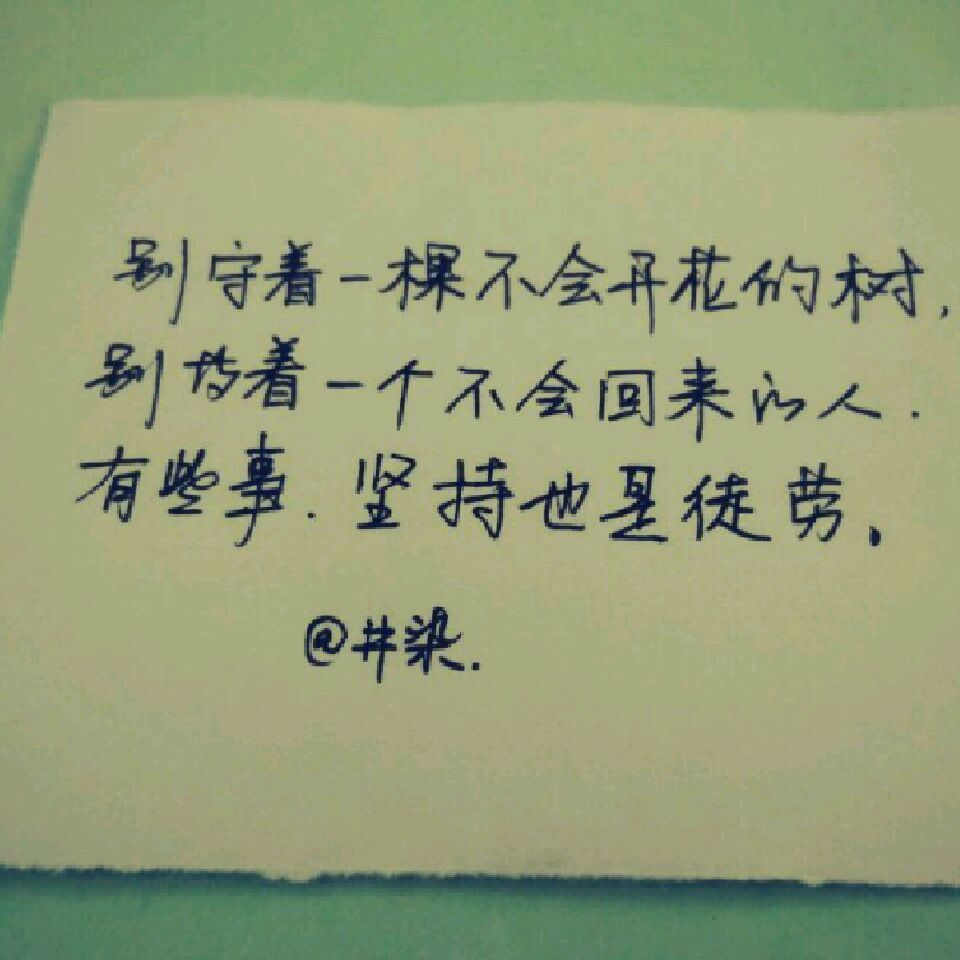 别守着一棵不会开花的树,
别均着一个不会回来的人.
有些事.坚持也是徒劳.
@井染.